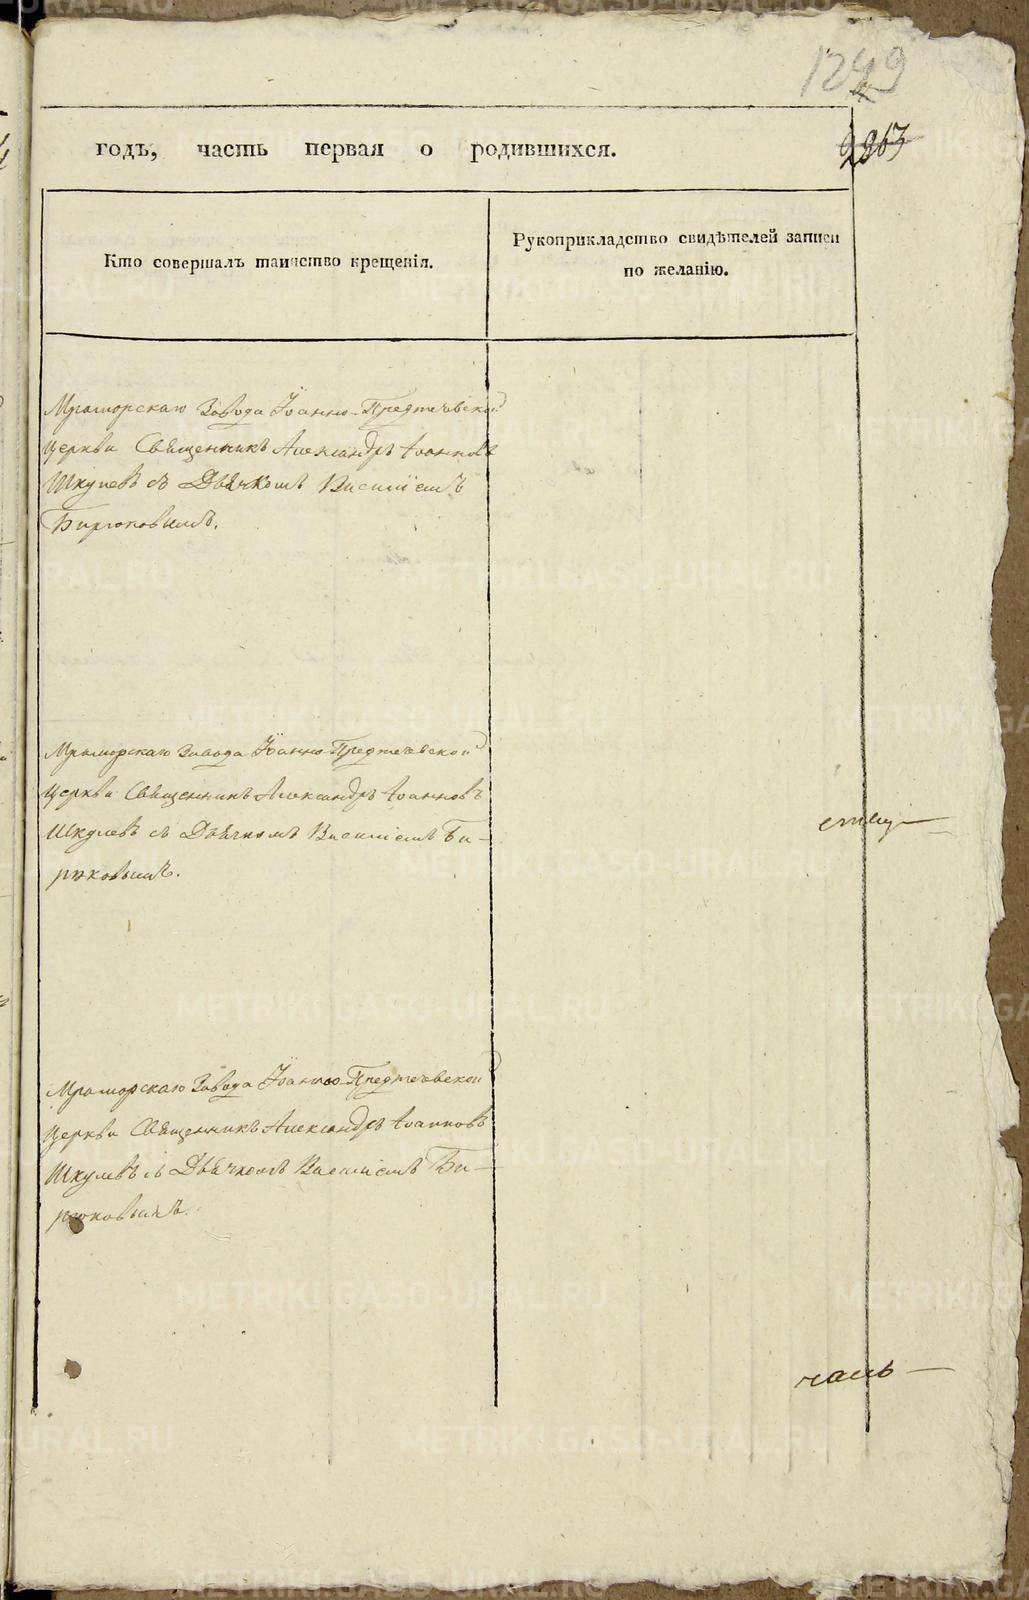 1249
годъ, часть первая о родившихся.
2263
Кто совершалъ таинство крещенія.
Рукоприкладство свидѣтелей записи
по желанію.
Мраморскаго Завода Іоанно-Предтечевской
церкви Священникъ Александръ Іоанновъ
Шкулевъ съ Дьячкомъ Василіемъ
Бирюковымъ.
Мраморскаго Завода Іоанно-Предтечевской
церкви Священникъ Александръ Іоанновъ
Шкулевъ съ Дьячкомъ Василіемъ Би-
рюковымъ.
Мраморскаго Завода Іоанно-Предтечевской
церкви Священникъ Александръ Іоанновъ
Шкулевъ съ Дьячкомъ Василіемъ Би-
рюковымъ.
METRIKI.GASO-URAL.RU